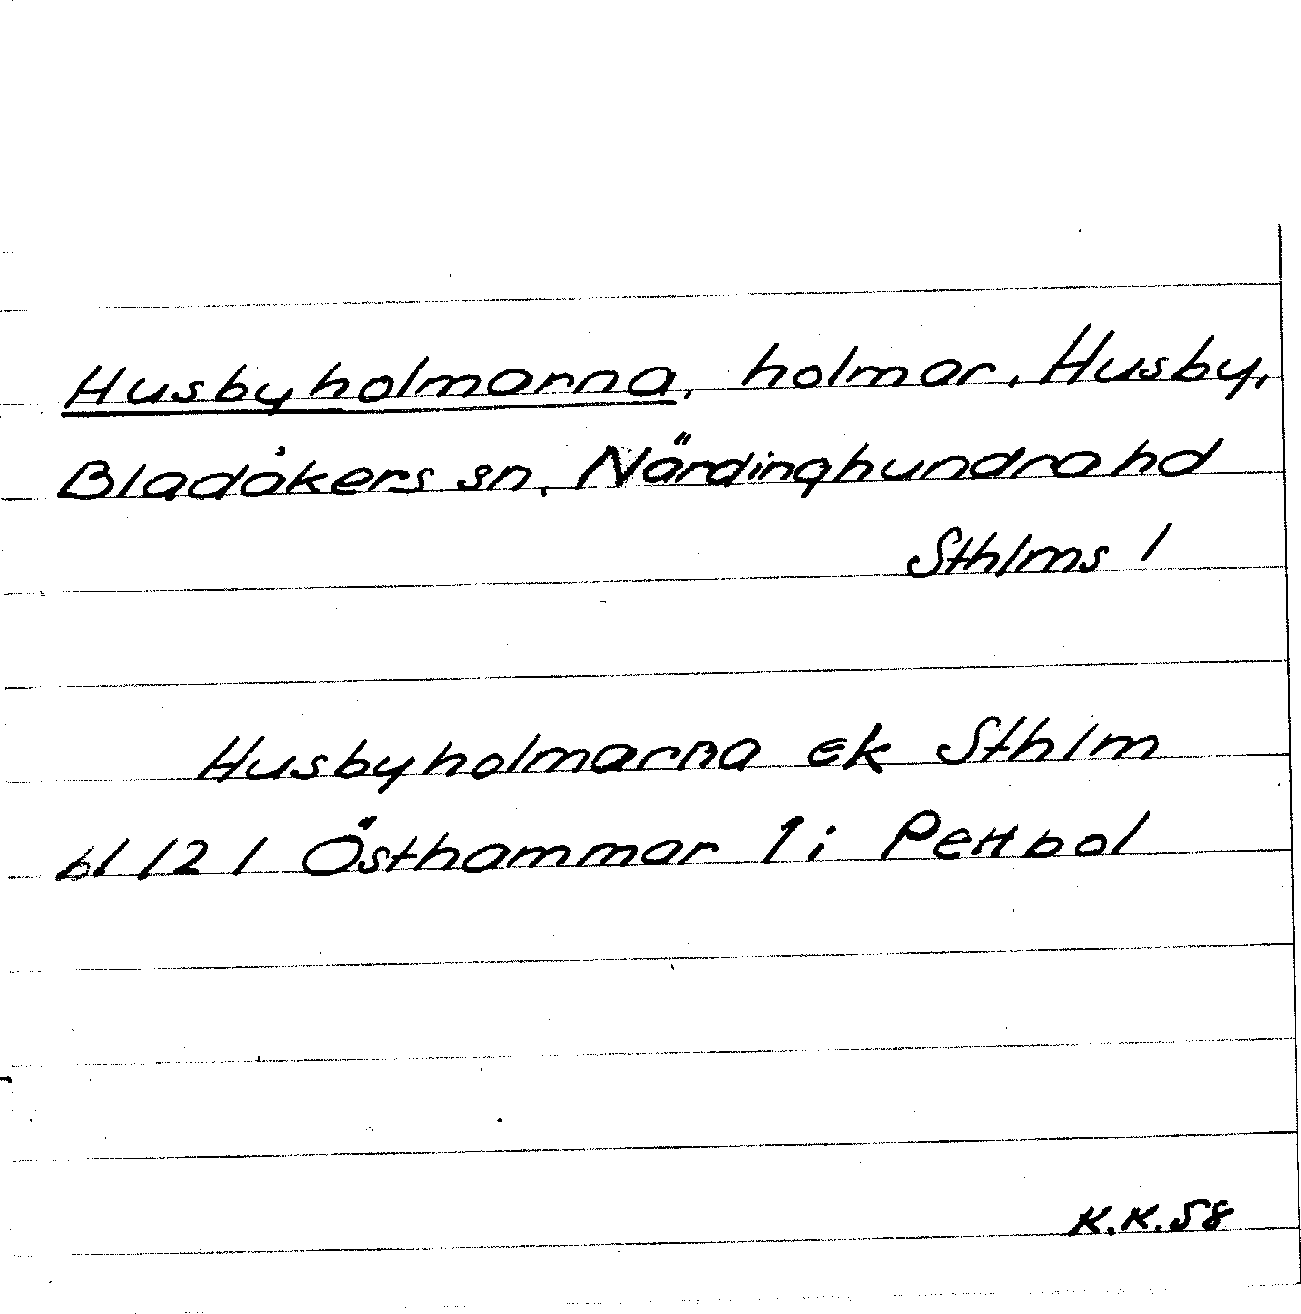 Husbyholmarna, holmar, Husby,
Bladåkers sn, Närdinghundra hd
Sthlms l
Husbyholmarna ek Sthlm
bl 121 Östhammar 1 i Pettbol
K.K. 58